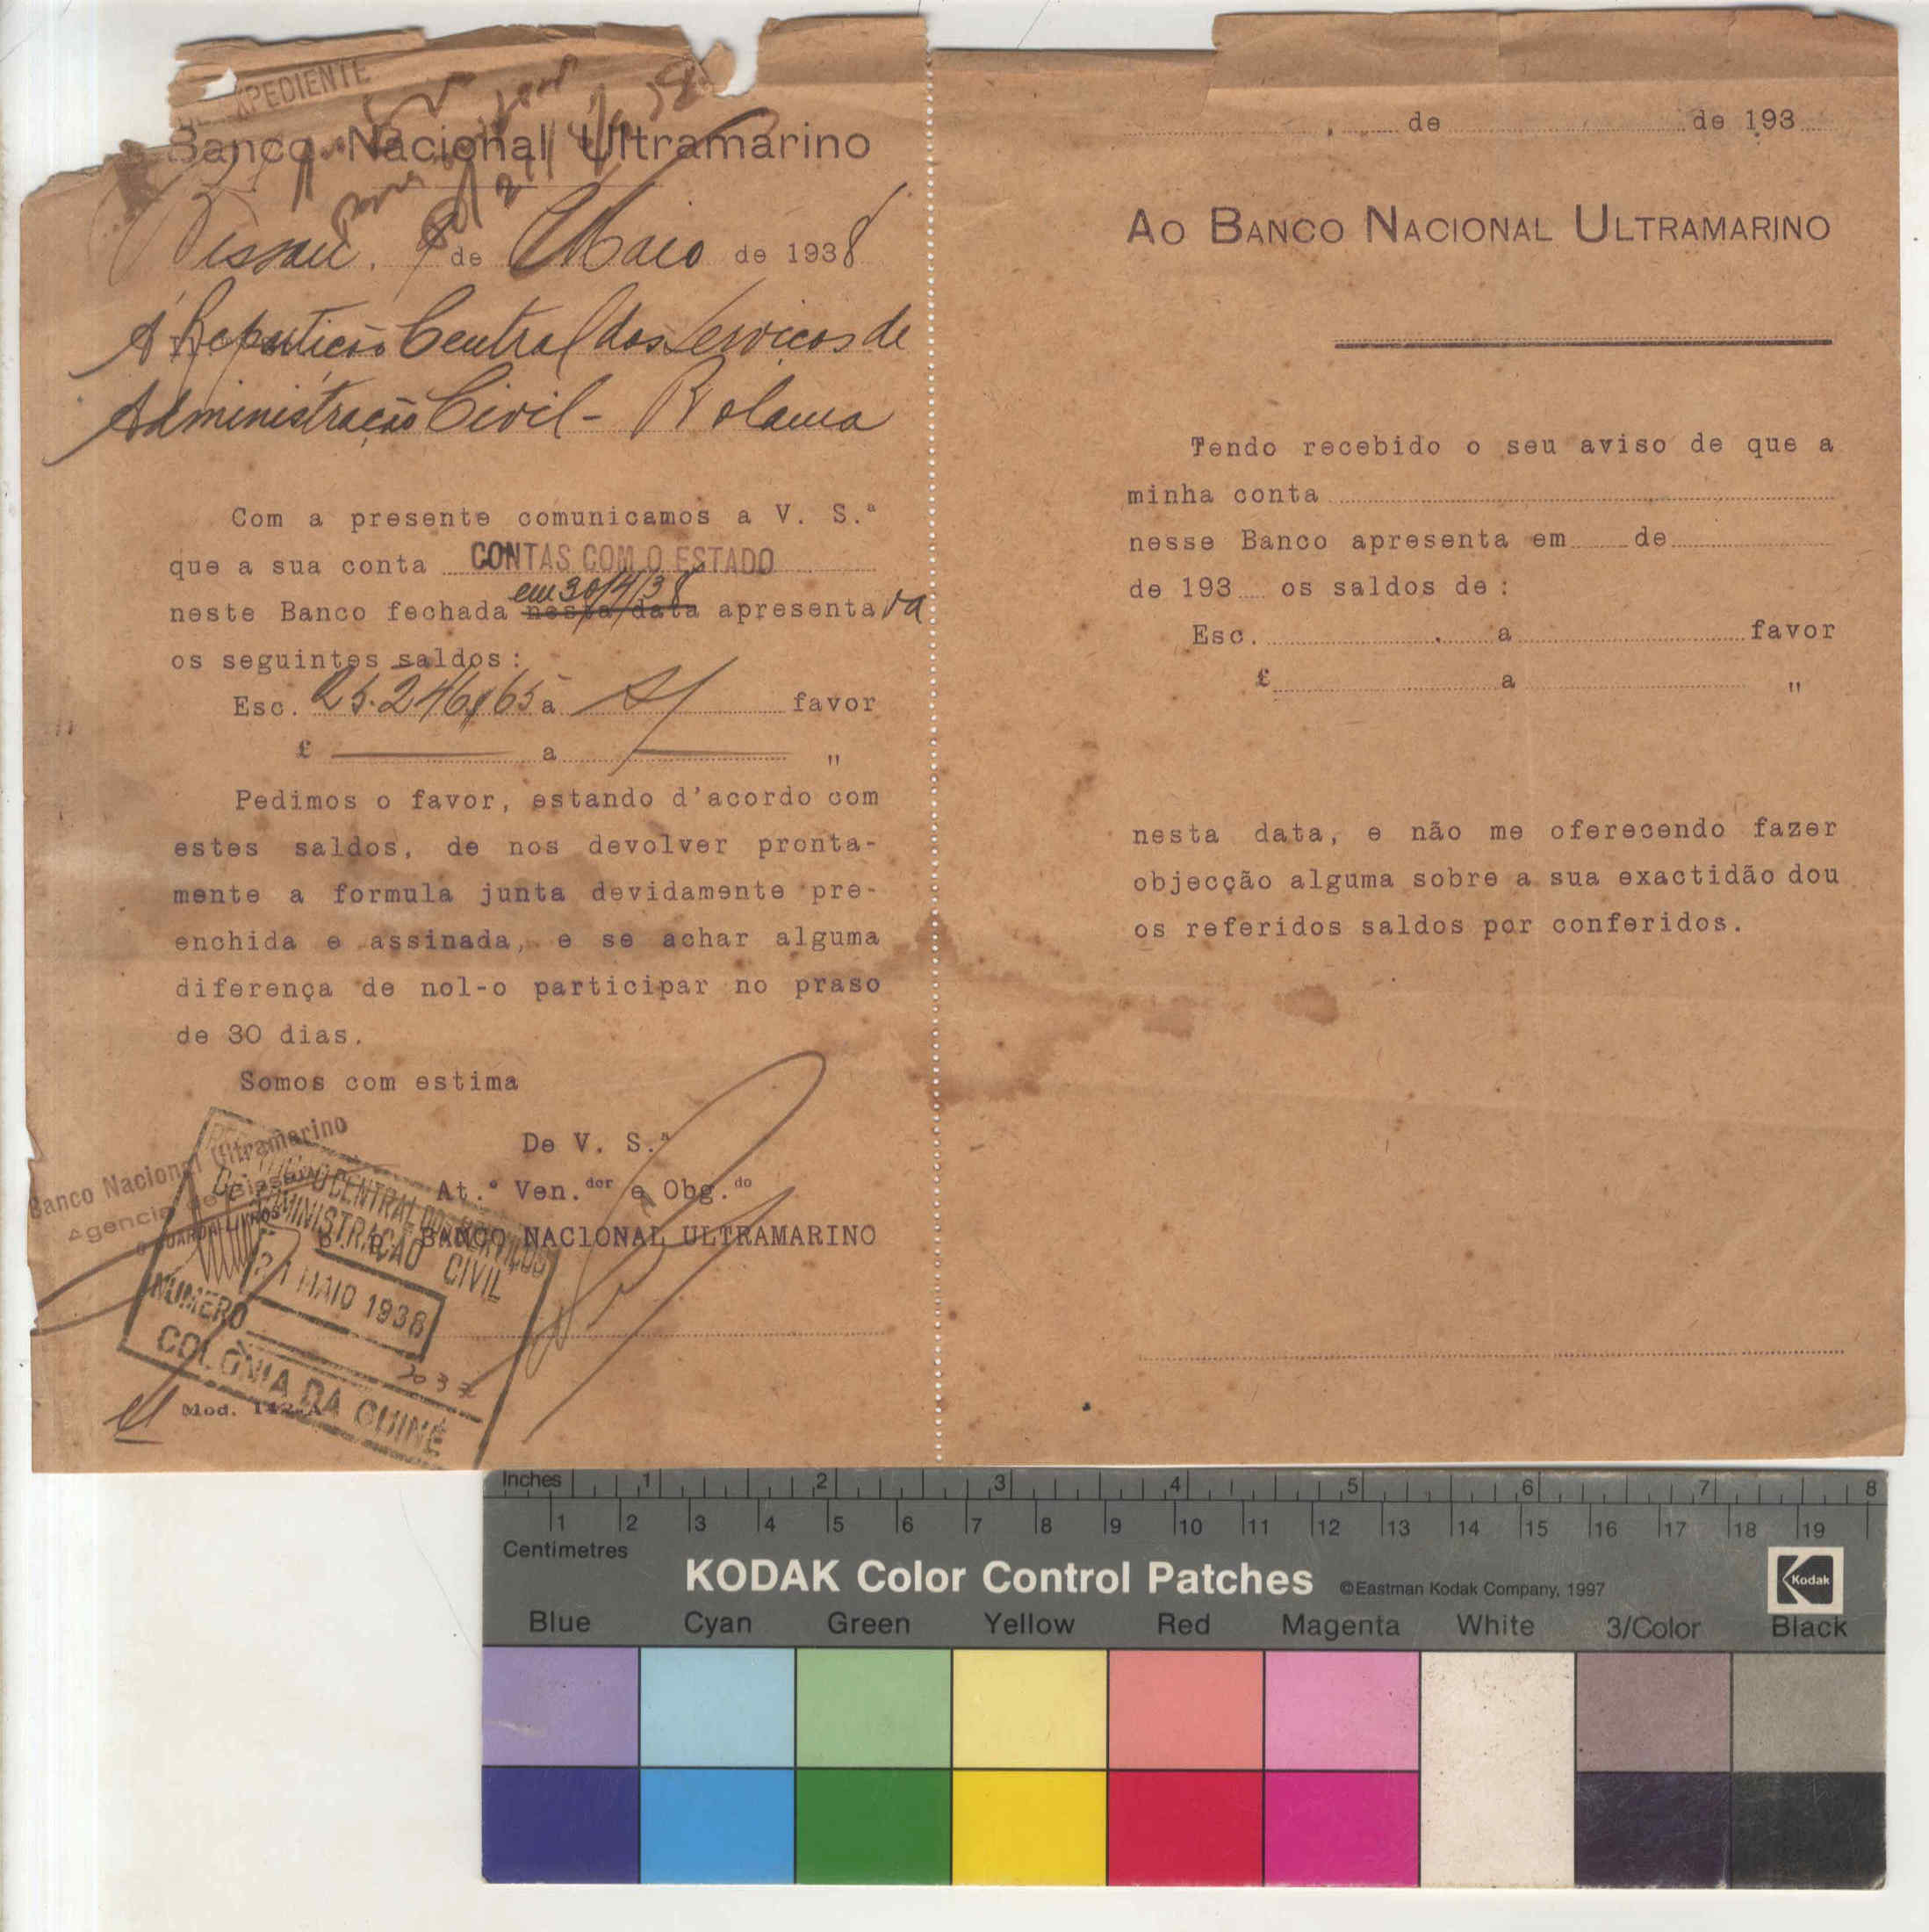 EXPEDIENTE
Banco Nacional Ultramarino
Bissau, 9 de Maio de 1938
Á Repartição Central dos Serviços de
Administração Civil - Bolama
Com a presente comunicamos a V. S.ª
que a sua conta CONTAS COM O ESTADO
em 30/4/38
neste Banco fechada nesta data apresentava
os seguintes saldos:
Esc. 25.246$65 a s/ favor
£ a "
Pedimos o favor, estando d'acordo com
estes saldos, de nos devolver pronta-
mente a formula junta devidamente pre-
enchida e assinada, e se achar alguma
diferença de nol-o participar no praso
de 30 dias.
Somos com estima
De V. S.ª
At.º Ven.dor e Obg.do
BANCO NACIONAL ULTRAMARINO
Banco Nacional Ultramarino
Agencia de Bissau
O GUARDA LIVROS
REPARTIÇÃO CENTRAL DOS SERVIÇOS
DE ADMINISTRAÇÃO CIVIL
21 MAIO 1938
NUMERO
2037
COLÓNIA DA GUINÉ
Mod. 142-A
, de de 193
AO BANCO NACIONAL ULTRAMARINO
Tendo recebido o seu aviso de que a
minha conta
nesse Banco apresenta em de
de 193 os saldos de:
Esc. a favor
£ a "
nesta data, e não me oferecendo fazer
objecção alguma sobre a sua exactidão dou
os referidos saldos por conferidos.
Inches 1 2 3 4 5 6 7 8
1 2 3 4 5 6 7 8 9 10 11 12 13 14 15 16 17 18 19
Centimetres
KODAK Color Control Patches ©Eastman Kodak Company, 1997 Kodak
Blue Cyan Green Yellow Red Magenta White 3/Color Black